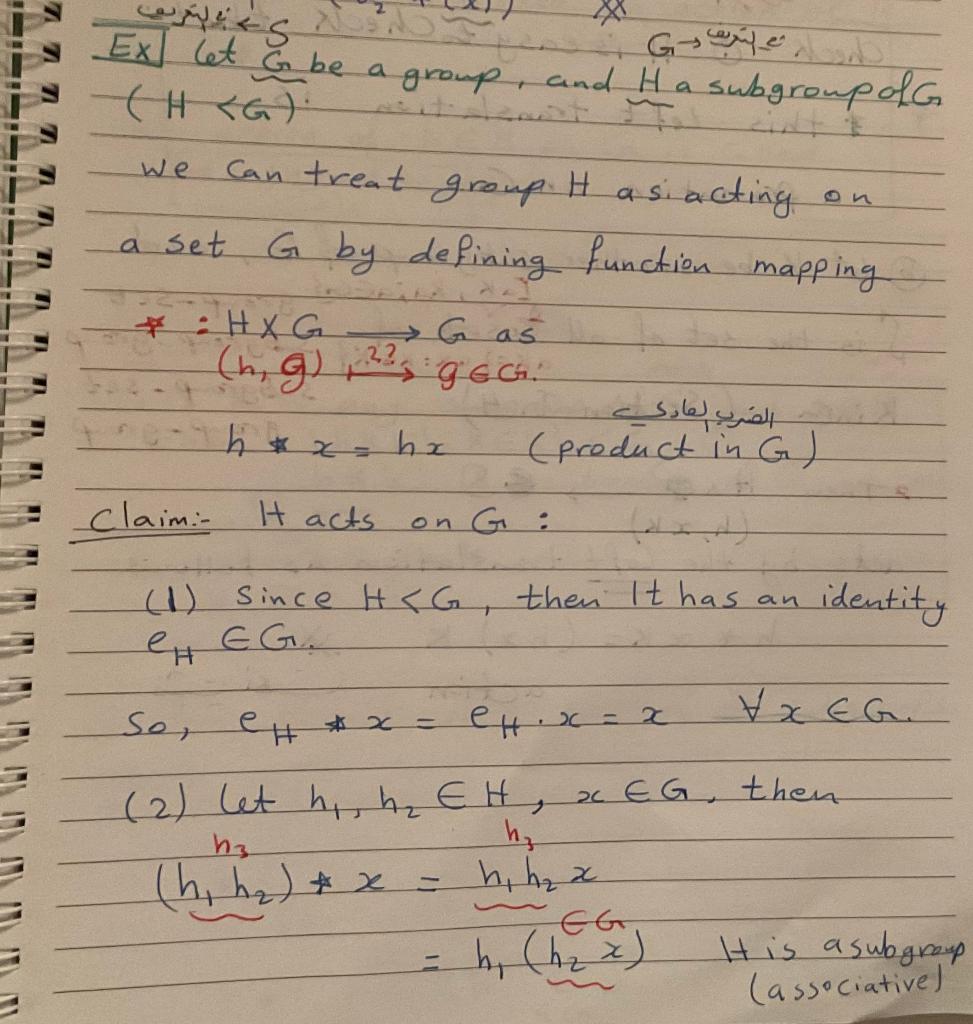 Ex] let G be a group, and H a subgroup of G
(H < G)
we can treat group H as acting on
a set G by defining function mapping
* : H X G → G as
(h, g) ↦ ?? g ∈ G.
الضرب العادي
h * x = hx (product in G)
Claim:- H acts on G :
(1) Since H < G, then It has an identity
e_H ∈ G.
So, e_H * x = e_H . x = x ∀ x ∈ G.
(2) let h₁, h₂ ∈ H, x ∈ G, then
h₃ h₃
(h₁ h₂) * x = h₁ h₂ x
∈ G
= h₁ (h₂ x) H is a subgroup
(associative)